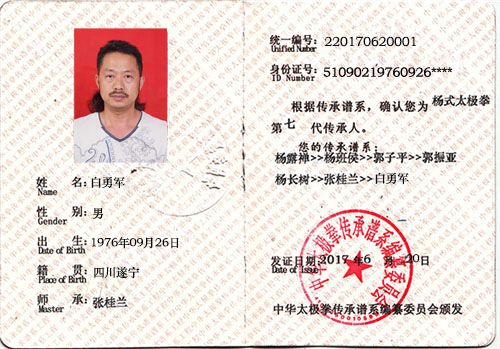 姓 名: 白勇军
Name
性 别: 男
Gender
出 生: 1976年09月26日
Date of Birth
籍 贯: 四川遂宁
Place of Birth
师 承: 张桂兰
Master
统一编号: 220170620001
Unified Number
身份证号: 51090219760926****
ID Number
根据传承谱系，确认您为 杨式太极拳
第 七 代传承人。
您的传承谱系:
杨露禅>>杨班侯>>郭子平>>郭振亚
杨长树>>张桂兰>>白勇军
中华太极拳传承谱系编纂委员会
发证日期: 2017 年 6 月 20日
Date of Issue
中华太极拳传承谱系编纂委员会颁发